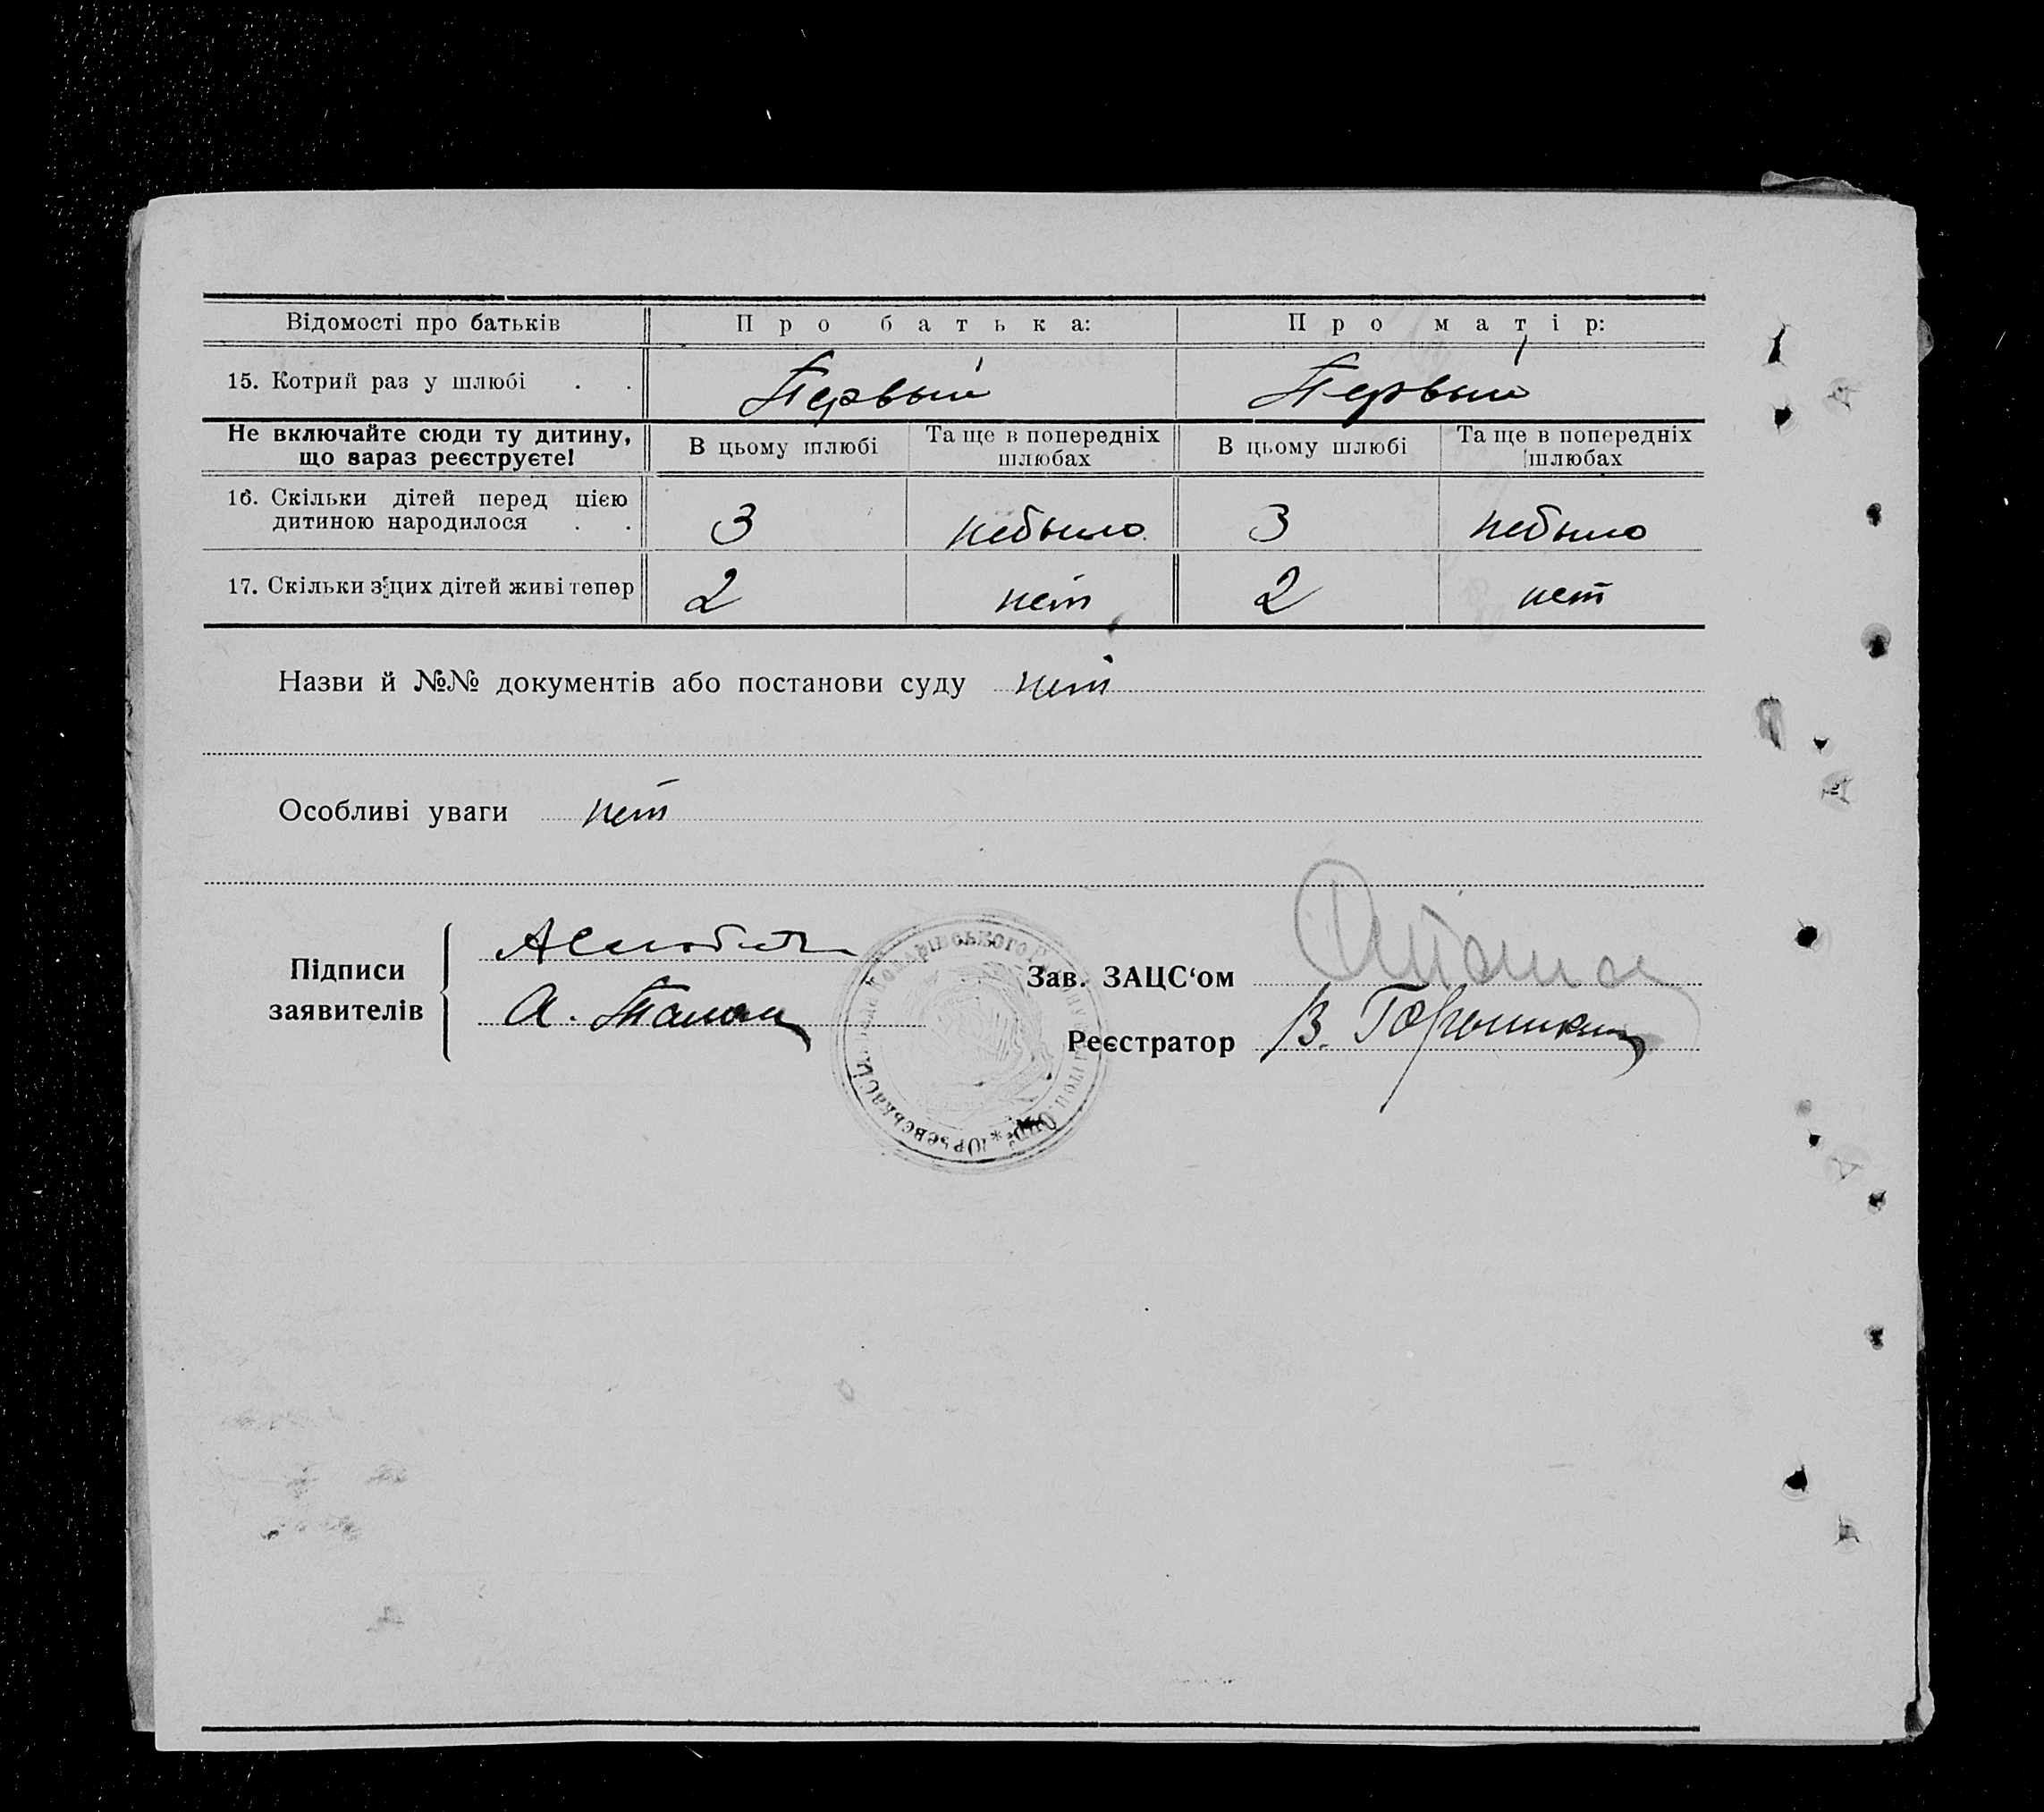 Відомості про батьків Про батька: Про матір:
15. Котрий раз у шлюбі . . Первый Первый
Не включайте сюди ту дитину, що зараз реєструєте! В цьому шлюбі Та ще в попередніх шлюбах В цьому шлюбі Та ще в попередніх шлюбах
16. Скільки дітей перед цією
дитиною народилося . . 3 небыло 3 небыло
17. Скільки з цих дітей живі тепер 2 нет 2 нет
Назви й №№ документів або постанови суду нет
Особливі уваги нет
Підписи
заявителів
А.
Зав. ЗАЦС‘ом
Реєстратор В.